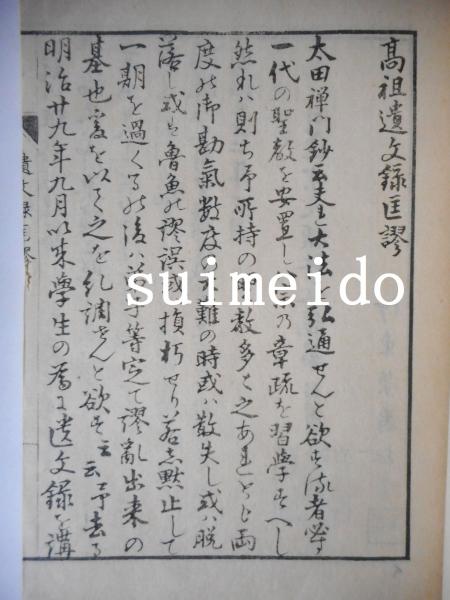 高祖遺文錄匡謬
太田禅門鈔云夫大法を弘通せんと欲する者必す
一代の聖教を安置し八宗の章疏を習學すへし
然れハ則ち予所持の聖教多々之あれとも両
度の御勘氣数度の大難の時或ハ散失し或ハ脱
落し或は魯魚の謬誤或損朽せり若し默止して
一期を過くるの後ハ弟子等定て謬亂出来の
基也爰を以て之を糺調せんと欲す云云予去る
明治廿九年九月以来學生の為に遺文錄を講
遺文錄匡謬
suimeido